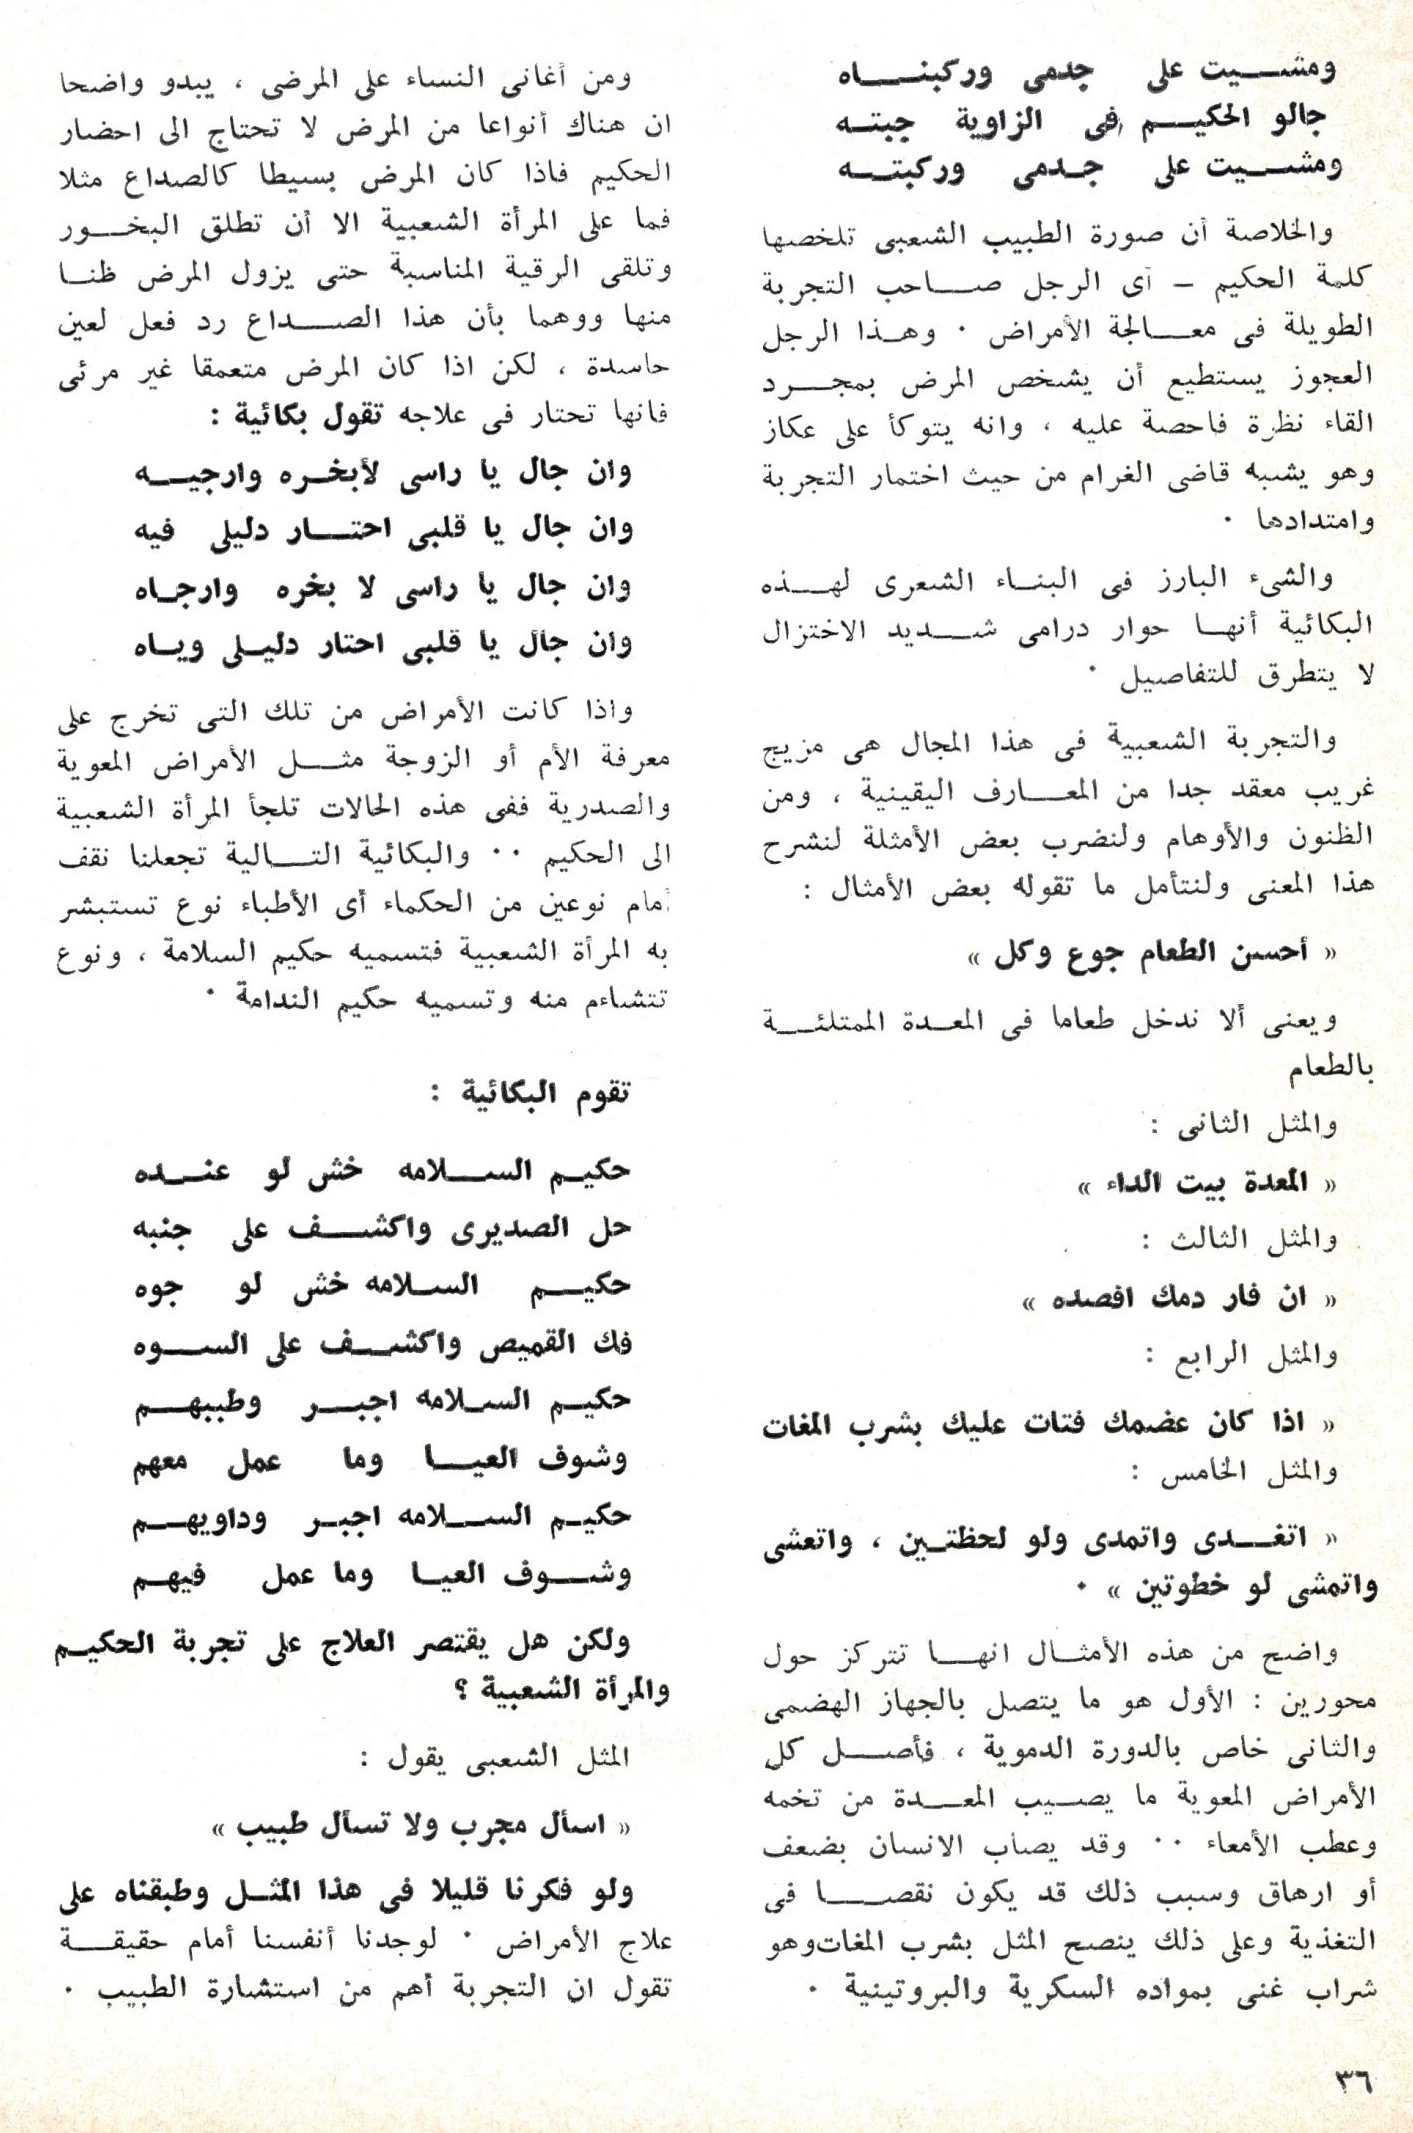 ومشيت على جدمى وركبناه
جالو الحكيم فى الزاوية جبته
ومشيت على جدمى وركبته
والخلاصة أن صورة الطبيب الشعبى تلخصها
كلمة الحكيم – أى الرجل صاحب التجربة
الطويلة فى معالجة الأمراض . وهذا الرجل
العجوز يستطيع أن يشخص المرض بمجرد
القاء نظرة فاحصة عليه ، وانه يتوكأ على عكاز
وهو يشبه قاضى الغرام من حيث اختمار التجربة
وامتدادها .
والشىء البارز فى البناء الشعرى لهذه
البكائية أنها حوار درامى شديد الاختزال
لا يتطرق للتفاصيل .
والتجربة الشعبية فى هذا المجال هى مزيج
غريب معقد جدا من المعارف اليقينية ، ومن
الظنون والأوهام ولنضرب بعض الأمثلة لنشرح
هذا المعنى ولنتأمل ما تقوله بعض الأمثال :
« أحسن الطعام جوع وكل »
ويعنى ألا ندخل طعاما فى المعدة الممتلئة
بالطعام
والمثل الثانى :
« المعدة بيت الداء »
والمثل الثالث :
« ان فار دمك افصده »
والمثل الرابع :
« اذا كان عضمك فتات عليك بشرب المغات
والمثل الخامس :
« اتغدى واتمدى ولو لحظتين ، واتعشى
واتمشى لو خطوتين » .
واضح من هذه الأمثال انها تتركز حول
محورين : الأول هو ما يتصل بالجهاز الهضمى
والثانى خاص بالدورة الدموية ، فأصل كل
الأمراض المعوية ما يصيب المعدة من تخمه
وعطب الأمعاء .. وقد يصاب الانسان بضعف
أو ارهاق وسبب ذلك قد يكون نقصا فى
التغذية وعلى ذلك ينصح المثل بشرب المغات وهو
شراب غنى بمواده السكرية والبروتينية .
ومن أغانى النساء على المرضى ، يبدو واضحا
ان هناك أنواعا من المرض لا تحتاج الى احضار
الحكيم فاذا كان المرض بسيطا كالصداع مثلا
فما على المرأة الشعبية الا أن تطلق البخور
وتلقى الرقية المناسبة حتى يزول المرض ظنا
منها ووهما بأن هذا الصداع رد فعل لعين
حاسدة ، لكن اذا كان المرض متعمقا غير مرئى
فانها تحتار فى علاجه تقول بكائية :
وان جال يا راسى لأبخره وارجيه
وان جال يا قلبى احتار دليلى فيه
وان جال يا راسى لا بخره وارجاه
وان جال يا قلبى احتار دليلى وياه
واذا كانت الأمراض من تلك التى تخرج على
معرفة الأم أو الزوجة مثل الأمراض المعوية
والصدرية ففى هذه الحالات تلجأ المرأة الشعبية
الى الحكيم .. والبكائية التالية تجعلنا نقف
أمام نوعين من الحكماء أى الأطباء نوع تستبشر
به المرأة الشعبية فتسميه حكيم السلامة ، ونوع
تتشاءم منه وتسميه حكيم الندامة .
تقوم البكائية :
حكيم السلامه خش لو عنده
حل الصديرى واكشف على جنبه
حكيم السلامه خش لو جوه
فك القميص واكشف على السوه
حكيم السلامه اجبر وطببهم
وشوف العيا وما عمل معهم
حكيم السلامه اجبر وداويهم
وشوف العيا وما عمل فيهم
ولكن هل يقتصر العلاج على تجربة الحكيم
والمرأة الشعبية ؟
المثل الشعبى يقول :
« اسأل مجرب ولا تسأل طبيب »
ولو فكرنا قليلا فى هذا المثل وطبقناه على
علاج الأمراض . لوجدنا أنفسنا أمام حقيقة
تقول ان التجربة أهم من استشارة الطبيب .
٣٦